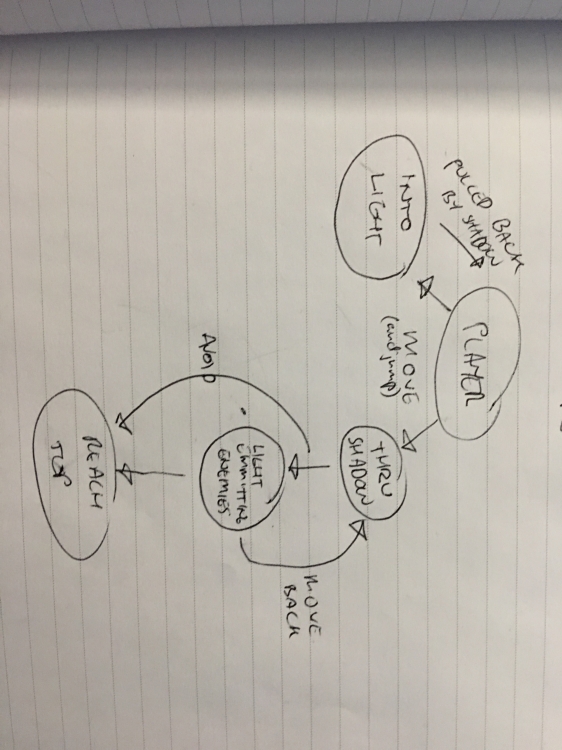 PULLED BACK
BY SHADOW
PLAYER
INTO
LIGHT
MOVE
(and jump)
THRU
SHADOW
LIGHT
EMMITTING
ENEMIES
MOVE
BACK
AVOID
REACH
TOP